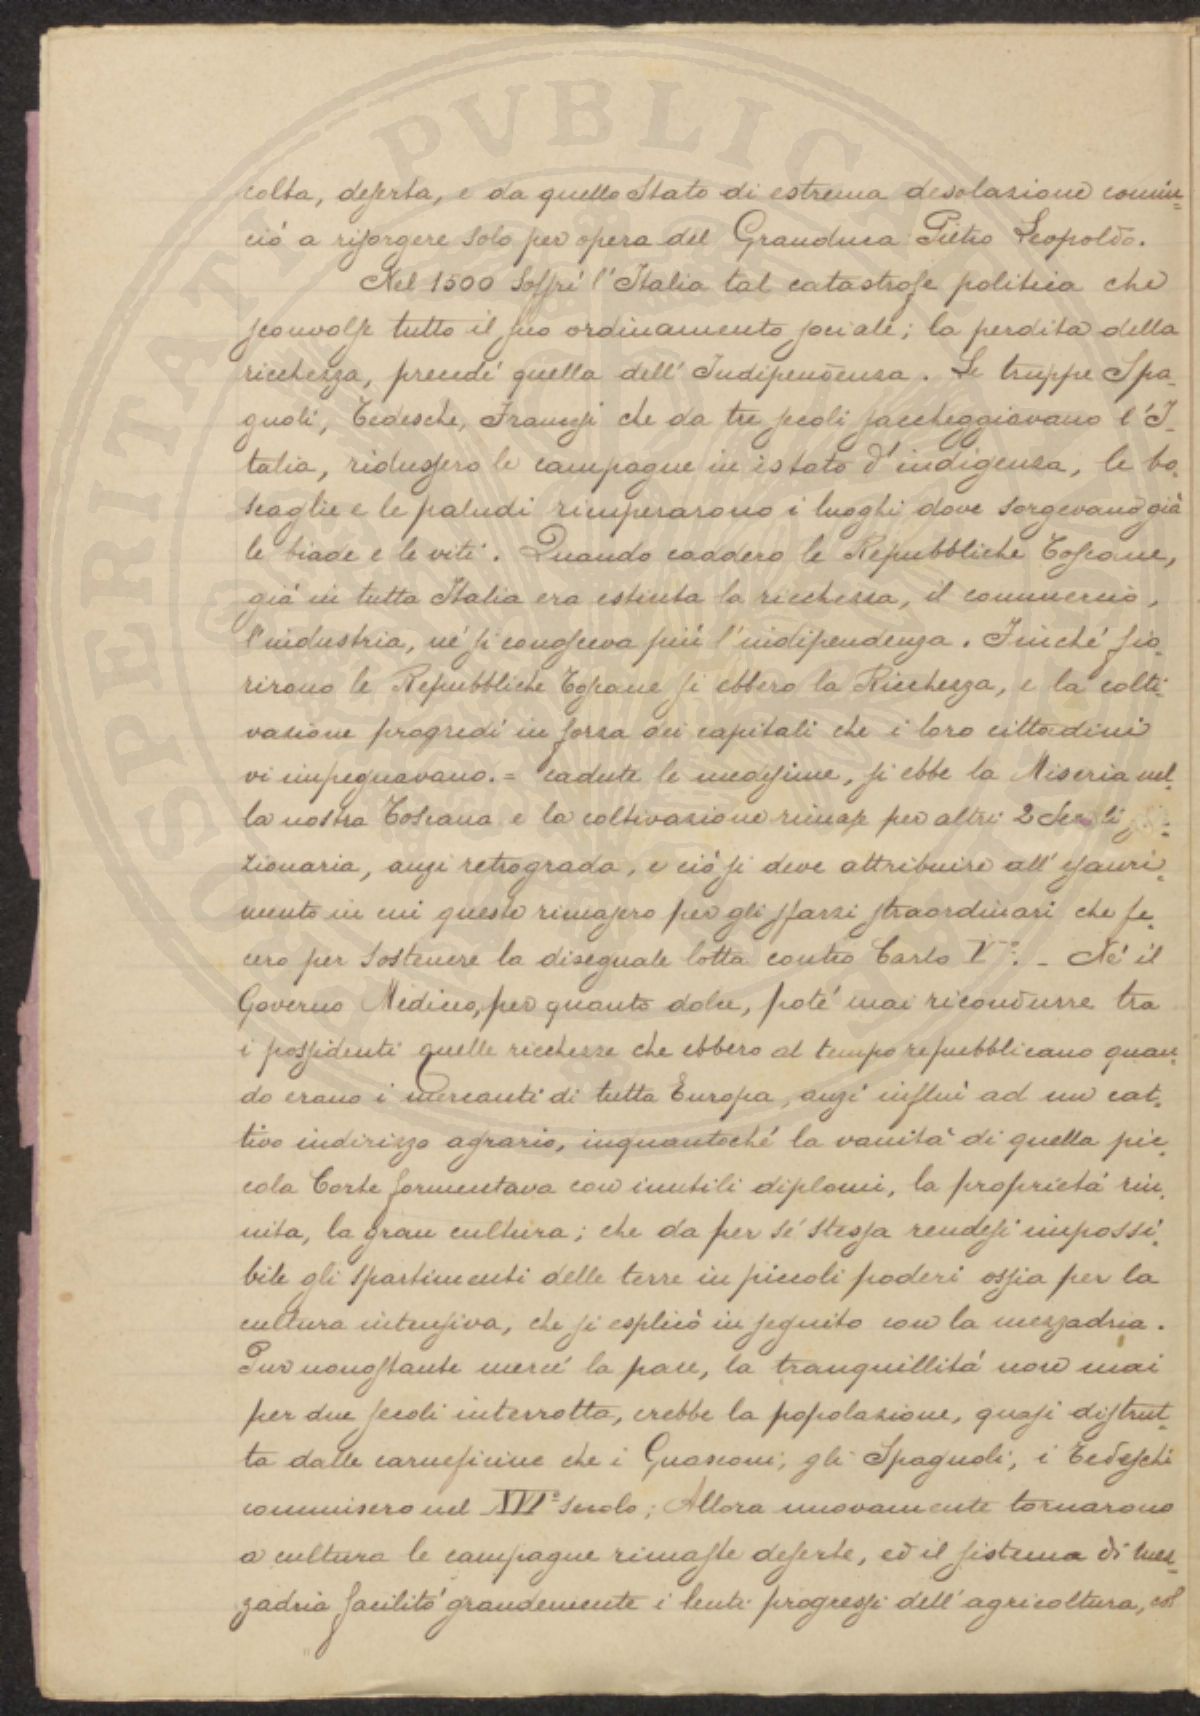 colta, deserta, e da quello Stato di estrema desolazione comin=
ciò a risorgere solo per opera del Granduca Pietro Leopoldo.
Nel 1500 Soffrì l'Italia tal catastrofe politica che
sconvolse tutto il suo ordinamento sociale; la perdita della
ricchezza, precedé quella dell'Indipendenza. Le truppe Spa-
gnoli, Tedesche, Francesi che da tre secoli saccheggiavano l'I-
talia, ridussero le campagne in istato d'indigenza, le bo-
scaglie e le paludi rimperarono i luoghi dove sorgevano già
le biade e le viti. Quando caddero le Repubbliche Toscane,
già in tutta Italia era estinta la ricchezza, il commercio,
l'industria, né si conosceva più l'indipendenza. Finché fio-
rirono le Repubbliche Toscane si ebbero la Ricchezza, e la colti-
vazione progredì in forza dei capitali che i loro cittadini
vi impegnavano. = cadute le medesime, si ebbe la Miseria nel-
la nostra Toscana e la coltivazione rimase per altri 2 Secoli
zionaria, anzi retrograda, e ciò si deve attribuire all'esauri-
mento in cui queste rimasero per gli sforzi straordinari che fe-
cero per sostenere la diseguale lotta contro Carlo V°. - Né il
Governo Mediceo, per quanto dolce, poté mai ricondurre tra
i possidenti quelle ricchezze che ebbero al tempo repubblicano quan-
do erano i mercanti di tutta Europa, anzi influì ad un cat-
tivo indirizzo agrario, inquantoché la vanità di quella pic-
cola Corte formentava con inutili diplomi, la proprietà riu-
nita, la gran cultura; che da per sé stessa rendesi impossi-
bile gli spartimenti delle terre in piccoli poderi ossia per la
cultura intensiva, che si esplicò in seguito con la mezzadria.
Pur nonostante mercé la pace, la tranquillità non mai
per due secoli interrotta, crebbe la popolazione, quasi distrut-
ta dalle carneficine che i Guasconi, gli Spagnoli, i Tedeschi
commisero nel XVI° secolo; Allora nuovamente tornarono
a cultura le campagne rimaste deserte, ed il sistema di mez-
zadria facilitò grandemente i lenti progressi dell'agricoltura, col
PROSPERITATI PVBLICAE